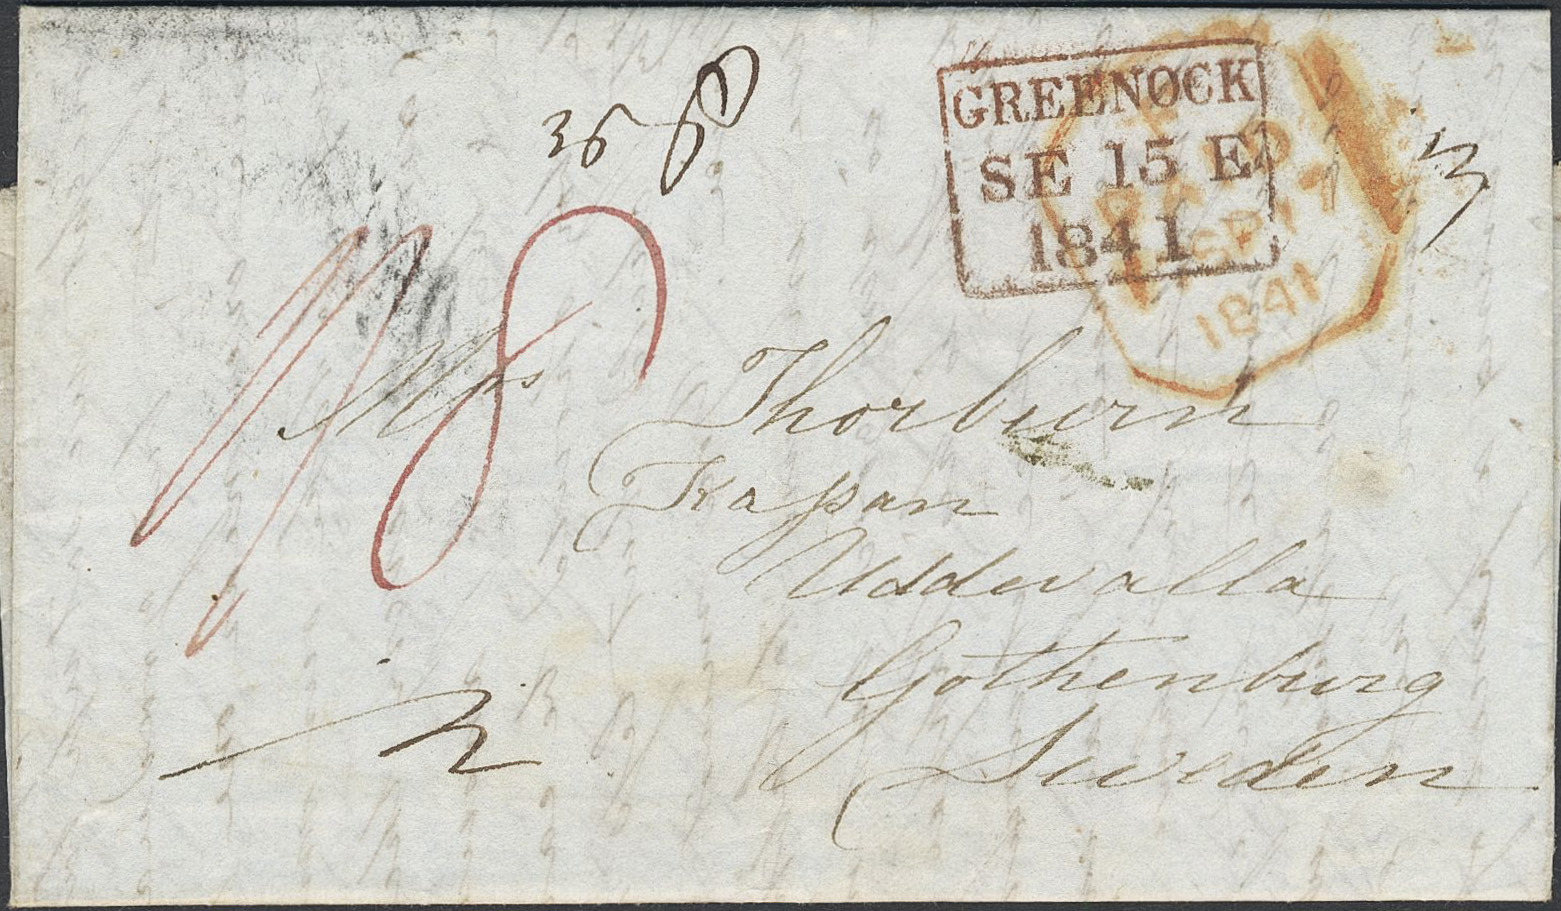 GREENOCK
SE 15 E
1841
PAID
SP 17
1841
36
1/8
Mrs Thorburn
Kasan
Uddevalla
Gothenburg
Sweden